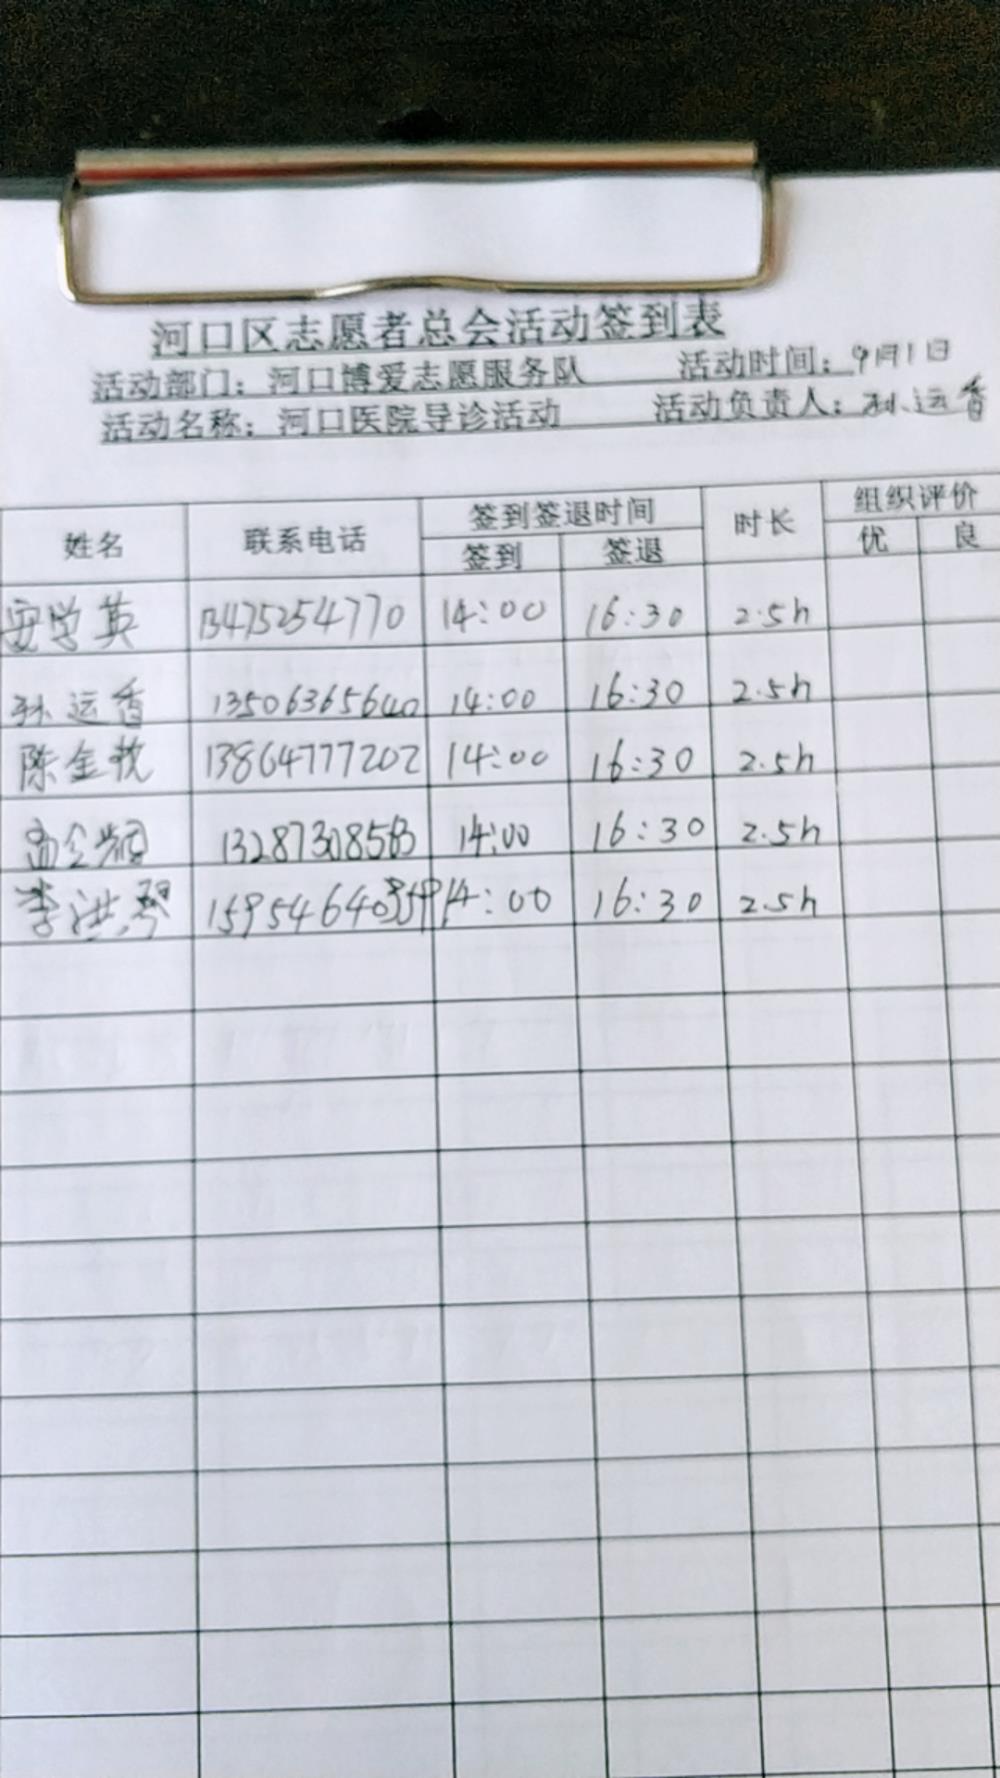 河口区志愿者总会活动签到表
活动部门：河口博爱志愿服务队 活动时间：9月1日
活动名称：河口医院导诊活动 活动负责人：孙运香
姓名 联系电话 签到签退时间 时长 组织评价
签到 签退 优 良
安学英 13475254770 14:00 16:30 2.5h
孙运香 13506365640 14:00 16:30 2.5h
陈金牧 13864777202 14:00 16:30 2.5h
14:00 16:30 2.5h
李洪琴 14:00 16:30 2.5h